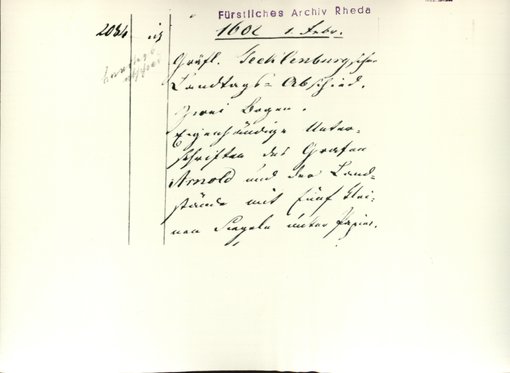 Fürstliches Archiv Rheda
2034 1602 1 Febr.
Gräfl. Tecklenburgischer
Landtags-Abschied.
Zwei Bogen.
Eigenhändige Unter-
schriften des Grafen
Arnold und der Land-
stände mit fünf klei-
nen Siegeln unter Papier.